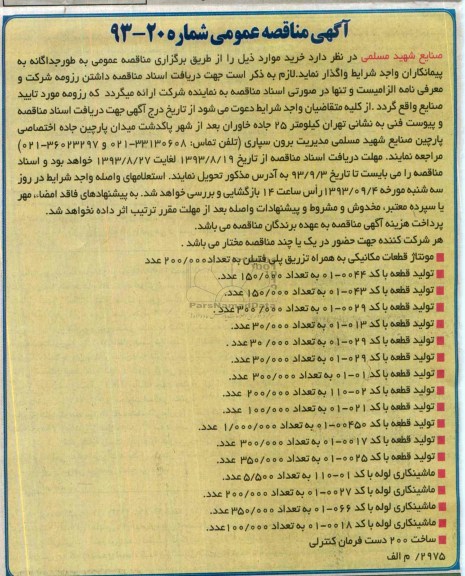 آگهی مناقصه عمومی شماره ۲۰-۹۳
صنایع شهید مسلمی در نظر دارد خرید موارد ذیل را از طریق برگزاری مناقصه عمومی به طورجداگانه به
پیمانکاران واجد شرایط واگذار نماید.لازم به ذکر است جهت دریافت اسناد مناقصه داشتن رزومه شرکت و
معرفی نامه الزامیست و تنها در صورتی اسناد مناقصه به نماینده شرکت ارائه میگردد که رزومه مورد تایید
صنایع واقع گردد .از کلیه متقاضیان واجد شرایط دعوت می شود از تاریخ درج آگهی جهت دریافت اسناد مناقصه
و پیوست فنی به نشانی تهران کیلومتر ۲۵ جاده خاوران بعد از شهر پاکدشت میدان پارچین جاده اختصاصی
پارچین صنایع شهید مسلمی مدیریت برون سپاری (تلفن تماس: ۳۳۱۳۰۶۰۸-۰۲۱ و ۳۶۰۲۳۲۹۷-۰۲۱)
مراجعه نمایند. مهلت دریافت اسناد مناقصه از تاریخ ۱۳۹۳/۸/۱۹ لغایت ۱۳۹۳/۸/۲۷ خواهد بود و اسناد
مناقصه را می بایست تا تاریخ ۹۳/۹/۳ به آدرس مذکور تحویل نمایند. استعلامهای واصله واجد شرایط در روز
سه شنبه مورخه ۱۳۹۳/۰۹/۴ رأس ساعت ۱۴ بازگشایی و بررسی خواهد شد. به پیشنهادهای فاقد امضاء، مهر
یا سپرده معتبر، مخدوش و مشروط و پیشنهادات واصله بعد از مهلت مقرر ترتیب اثر داده نخواهد شد.
پرداخت هزینه آگهی مناقصه به عهده برندگان مناقصه می باشد.
هر شرکت کننده جهت حضور در یک یا چند مناقصه مختار می باشد .
مونتاژ قطعات مکانیکی به همراه تزریق پلی فتیلن به تعداد۲۰۰/۰۰۰ عدد
تولید قطعه با کد ۰۰۴۴-۰۱ به تعداد ۱۵۰/۰۰۰ عدد.
تولید قطعه با کد ۰۴۳-۰۱ به تعداد ۱۵۰/۰۰۰ عدد.
تولید قطعه با کد ۰۰۲۹-۰۱ به تعداد ۳۰۰/۰۰۰ عدد .
تولید قطعه با کد ۰۱۳-۰۱ به تعداد ۳۰/۰۰۰ عدد.
تولید قطعه با کد ۰۲۹-۰۱ به تعداد ۳۰/۰۰۰ عدد .
تولید قطعه با کد ۰۲۹-۰۱ به تعداد ۳۰/۰۰۰ عدد.
تولید قطعه با کد ۰۱-۰۱ به تعداد ۳۰۰/۰۰۰ عدد.
تولید قطعه با کد ۰۲-۱۱۰ به تعداد ۲۰۰/۰۰۰ عدد.
تولید قطعه با کد ۰۲۱-۰۱ به تعداد ۱۰۰/۰۰۰ عدد.
تولید قطعه با کد ۰۰۴۵۰-۰۱ به تعداد ۱/۰۰۰/۰۰۰ عدد.
تولید قطعه با کد ۰۰۱۷-۰۱ به تعداد ۳۰۰/۰۰۰ عدد.
تولید قطعه با کد ۰۰۲۵-۰۱ به تعداد ۳۵۰/۰۰۰ عدد.
ماشینکاری لوله با کد ۰۱-۱۱۰ به تعداد ۵/۵۰۰ عدد.
ماشینکاری لوله با کد ۰۰۲۷-۰۱ به تعداد ۲۰۰/۰۰۰ عدد.
ماشینکاری لوله با کد ۰۶۶-۰۱ به تعداد ۳۵۰/۰۰۰ عدد.
ماشینکاری لوله با کد ۰۰۱۸-۰۱ به تعداد ۱۰۰/۰۰۰عدد.
ساخت ۲۰۰ دست فرمان کنترلی
۲۹۷۵/ م الف